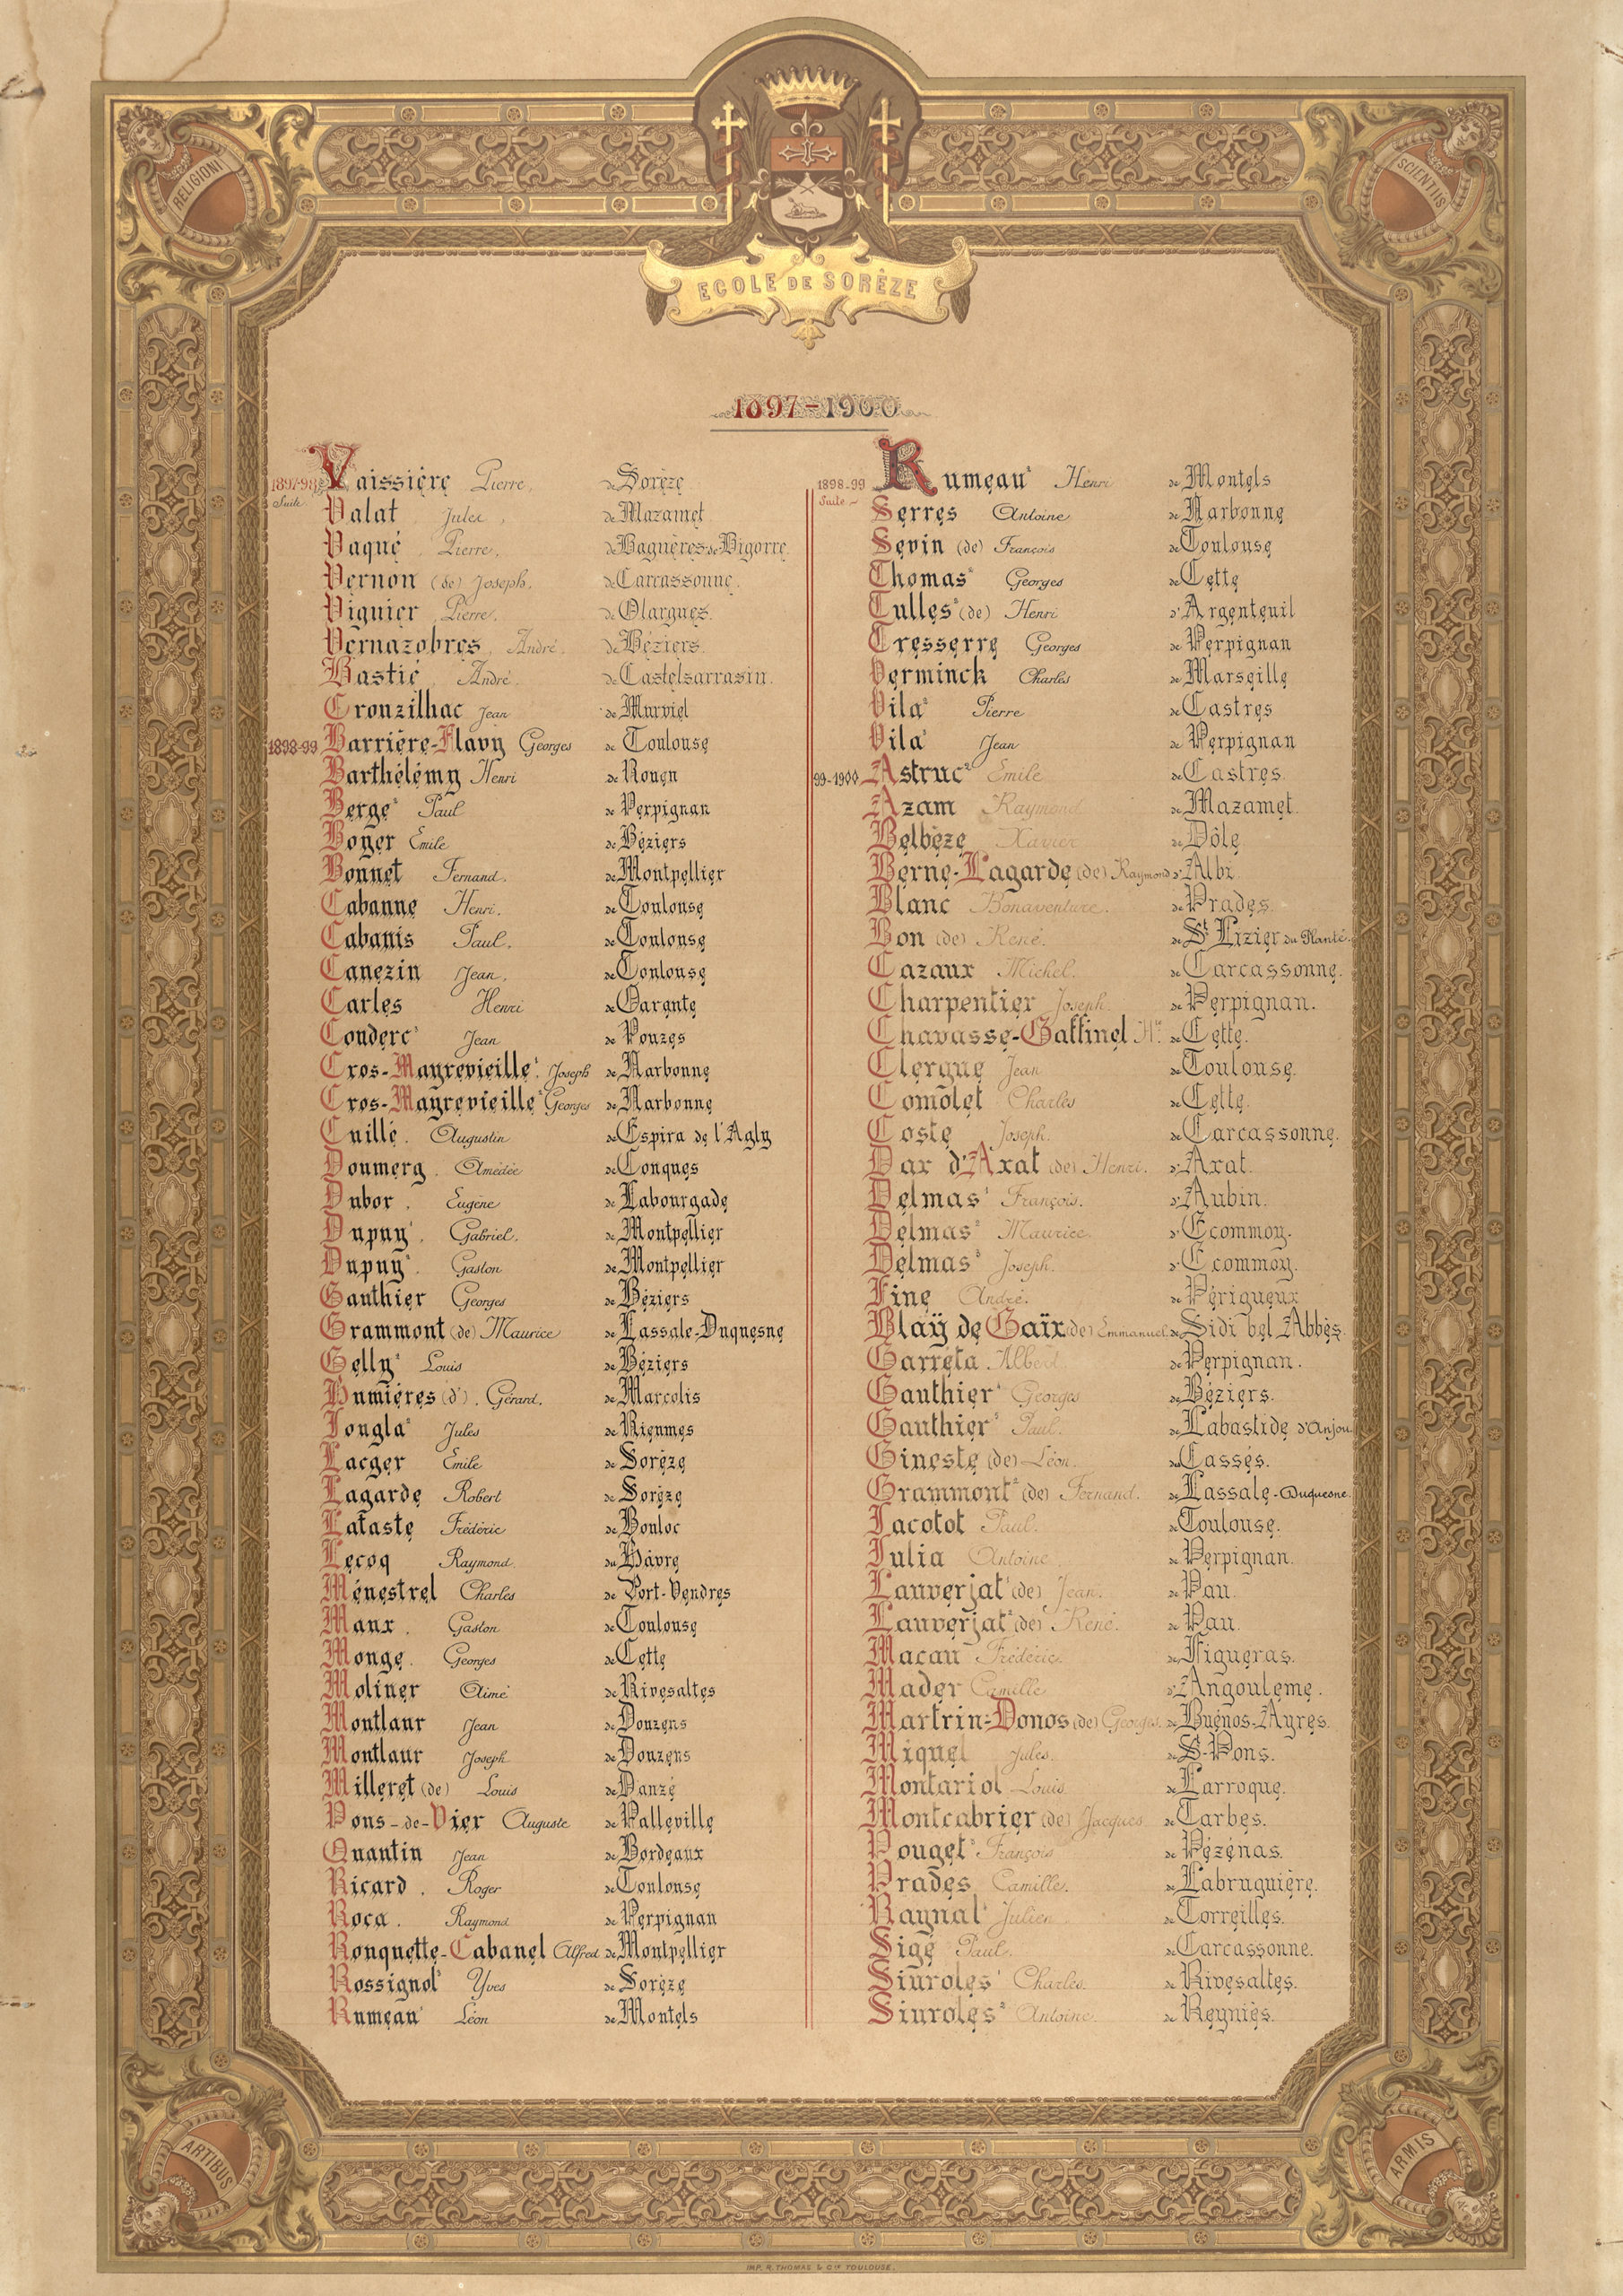 RELIGIONI
SCIENTIIS
ECOLE DE SORÈZE
1897-1900
1897-98 Suite
Vaissière Pierre, de Sorèze
Valat Jules, de Mazamet
Vaqué Pierre, de Bagnères-de-Bigorre
Vernon (de) Joseph, de Carcassonne.
Viguier Pierre, de Olargues.
Vernazobres André, de Béziers.
Bastié André de Castelsarrasin.
Crouzilhac Jean de Murviel
1898-99 Barrière-Flavy Georges de Toulouse
Barthélémy Henri de Rouen
Berge² Paul de Perpignan
Boyer Émile de Béziers
Bonnet Fernand. de Montpellier
Cabanne Henri. de Toulouse
Cabanis Paul. de Toulouse
Canezin Jean. de Toulouse
Carles Henri de Oarante
Couderc¹ Jean de Pouzes
Cros-Mayrevieille¹ Joseph de Narbonne
Cros-Mayrevieille² Georges de Narbonne
Cuillé. Augustin de Espira de l'Agly
Doumerg. Amédée de Conques
Dubor. Eugène de Labourgade
Dupuy¹. Gabriel. de Montpellier
Dupuy². Gaston de Montpellier
Gauthier Georges de Béziers
Grammont (de) Maurice de Lassale-Duquesne
Gelly² Louis de Béziers
Humières (d'). Gérard. de Marcolis
Jongla² Jules de Rieumes
Lacger Émile de Sorèze
Lagarde Robert de Sorèze
Lataste Frédéric de Bouloc
Lecoq Raymond. du Hâvre
Ménestrel Charles de Port-Vendres
Maux. Gaston de Toulouse
Monge. Georges de Cette
Moliner Aimé de Rivesaltes
Montlaur Jean de Douzens
Montlaur Joseph de Douzens
Milleret (de) Louis de Danzé
Pons-de-Vier Auguste de Palleville
Quantin Jean de Bordeaux
Ricard. Roger de Toulouse
Roca. Raymond de Perpignan
Rouquette-Cabanel Alfred de Montpellier
Rossignol² Yves de Sorèze
Rumeau¹ Léon de Montels
1898-99 Suite
Rumeau² Henri de Montels
Serres Antoine de Narbonne
Sevin (de) François de Toulouse
Thomas² Georges de Cette
Tulles² (de) Henri d'Argenteuil
Tresserre Georges de Perpignan
Verminck Charles de Marseille
Vila² Pierre de Castres
Vila¹ Jean de Perpignan
99-1900 Astruc² Émile de Castres.
Azam Raymond de Mazamet.
Belbèze Xavier de Dôle
Berne-Lagarde (de) Raymond d'Albi.
Blanc Bonaventure. de Prades.
Bon (de) René. de St Lizier du Planté.
Cazaux Michel. de Carcassonne.
Charpentier Joseph. de Perpignan.
Chavasse-Gaffinel Hri. de Cette.
Clergue Jean de Toulouse.
Comolet Charles de Cette.
Coste Joseph. de Carcassonne.
Dax d'Axat (de) Henri. d'Axat.
Delmas¹ François. d'Aubin.
Delmas² Maurice. d'Ecommoy.
Delmas³ Joseph. d'Ecommoy.
Fine André. de Périgueux
Blaÿ de Gaïx (de) Emmanuel. de Sidi bel Abbès.
Garreta Albert. de Perpignan.
Gauthier¹ Georges de Béziers.
Gauthier² Paul. de Labastide d'Anjou
Gineste (de) Léon. de Cassés.
Grammont² (de) Fernand. de Lassale-Duquesne.
Jacotot Paul. de Toulouse.
Julia Antoine de Perpignan.
Lauverjat¹ (de) Jean. de Pau.
Lauverjat² (de) René. de Pau.
Macau Frédéric. de Figueras.
Mader Camille d'Angoulême.
Martrin-Donos (de) Georges. de Buenos-Ayres.
Miquel Jules. de S-Pons.
Montariol Louis de Larroque.
Montcabrier (de) Jacques de Tarbes.
Pouget² François de Pézénas.
Prades Camille. de Labruguière.
Raynal¹ Julien de Torreilles.
Sigé Paul. de Carcassonne.
Siuroles¹ Charles. de Rivesaltes.
Siuroles² Antoine. de Reyniès.
ARTIBUS
ARMIS
IMP. R. THOMAS & Cie TOULOUSE.